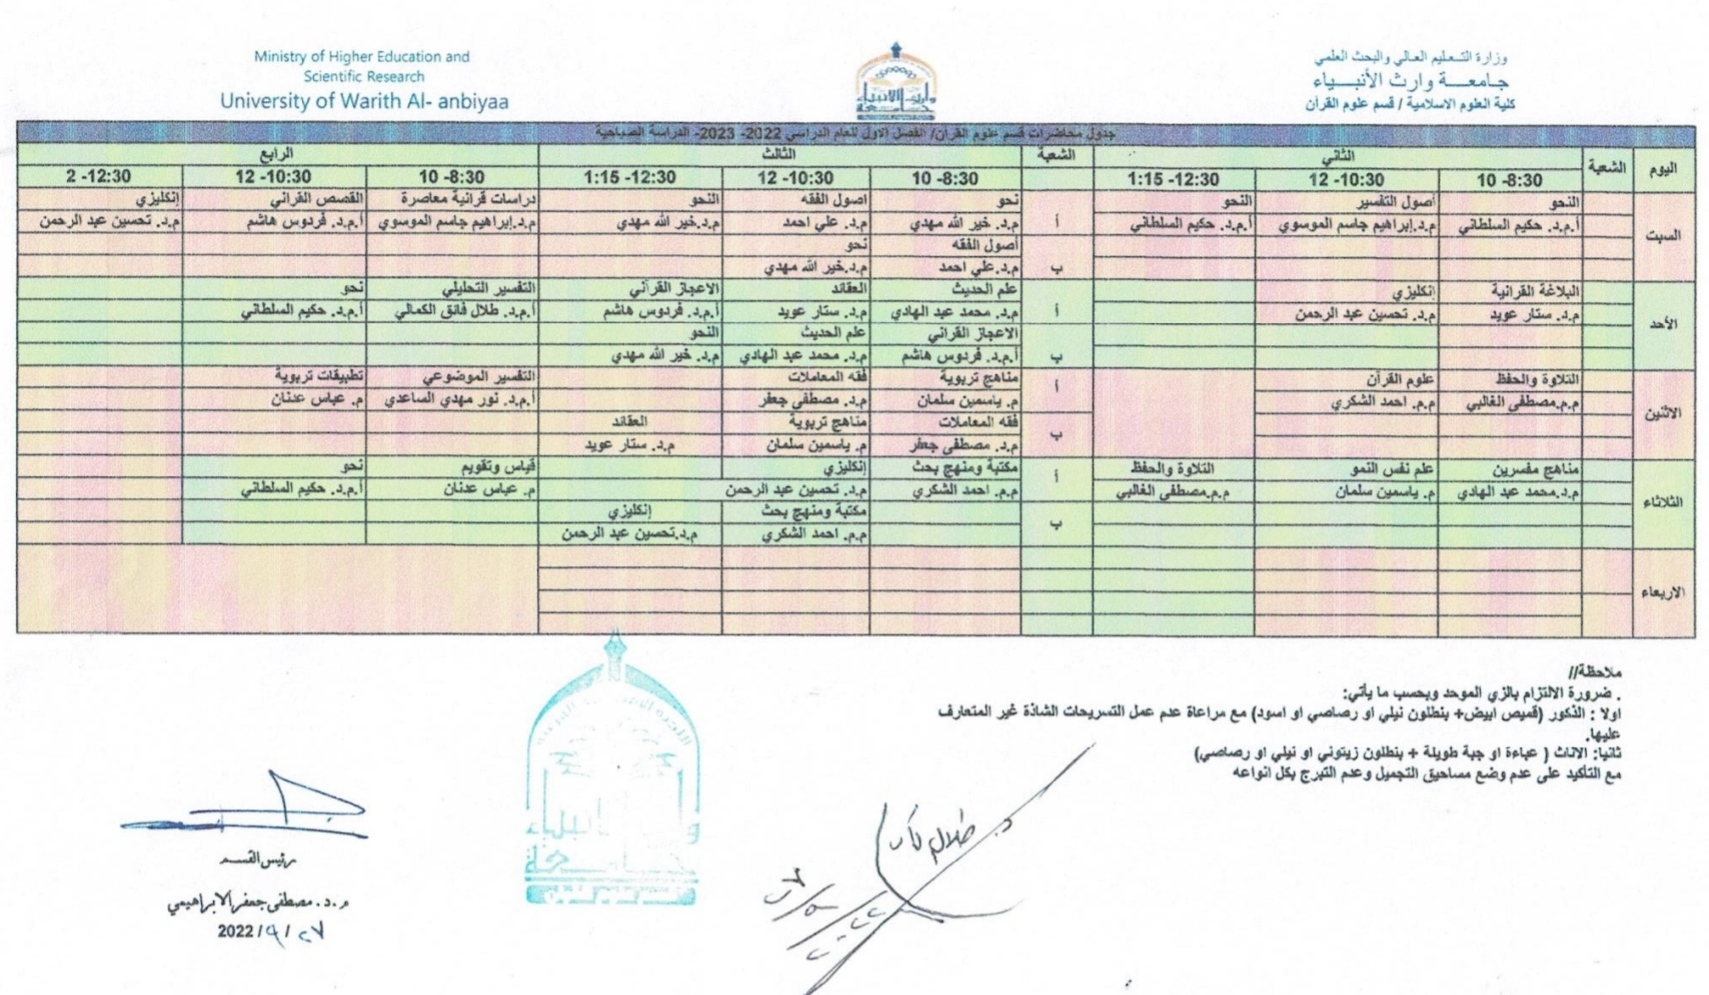 Ministry of Higher Education and
Scientific Research
University of Warith Al- anbiyaa
وزارة التـعليم العالي والبحث العلمي
جامعـــة وارث الأنبـــياء
كلية العلوم الاسلامية / قسم علوم القرآن
جدول محاضرات قسم علوم القرآن/ الفصل الاول للعام الدراسي 2022- 2023- الدراسة الصباحية
اليوم الشعبة الثاني الشعبة الثالث الرابع
10 -8:30 12 -10:30 1:15 -12:30 10 -8:30 12 -10:30 1:15 -12:30 10 -8:30 12 -10:30 2 -12:30
السبت النحو أصول التفسير النحو أ نحو اصول الفقه النحو دراسات قرانية معاصرة القصص القراني إنكليزي
أ.م.د. حكيم السلطاني م.د.إبراهيم جاسم الموسوي أ.م.د. حكيم السلطاني م.د. خير الله مهدي م.د. علي احمد م.د.خير الله مهدي م.د.إبراهيم جاسم الموسوي أ.م.د. فردوس هاشم م.د. تحسين عبد الرحمن
ب أصول الفقه نحو
م.د.علي احمد م.د.خير الله مهدي
الأحد البلاغة القرانية إنكليزي أ علم الحديث العقائد الاعجاز القرآني التفسير التحليلي نحو
م.د. ستار عويد م.د. تحسين عبد الرحمن م.د. محمد عبد الهادي م.د. ستار عويد أ.م.د. فردوس هاشم أ.م.د. طلال فائق الكمالي أ.م.د. حكيم السلطاني
ب الاعجاز القراني علم الحديث النحو
أ.م.د. فردوس هاشم م.د. محمد عبد الهادي م.د. خير الله مهدي
الاثنين التلاوة والحفظ علوم القرآن أ مناهج تربوية فقه المعاملات التفسير الموضوعي تطبيقات تربوية
م.م.مصطفى الغالبي م.م. احمد الشكري م. ياسمين سلمان م.د. مصطفى جعفر أ.م.د. نور مهدي الساعدي م. عباس عدنان
ب فقه المعاملات مناهج تربوية العقائد
م.د. مصطفى جعفر م. ياسمين سلمان م.د. ستار عويد
الثلاثاء مناهج مفسرين علم نفس النمو التلاوة والحفظ أ مكتبة ومنهج بحث إنكليزي قياس وتقويم نحو
م.د.محمد عبد الهادي م. ياسمين سلمان م.م.مصطفى الغالبي م.م. احمد الشكري م.د. تحسين عبد الرحمن م. عباس عدنان أ.م.د. حكيم السلطاني
ب مكتبة ومنهج بحث إنكليزي
م.م. احمد الشكري م.د.تحسين عبد الرحمن
الاربعاء
ملاحظة//
. ضرورة الالتزام بالزي الموحد وبحسب ما يأتي:
اولا : الذكور (قميص ابيض+ بنطلون نيلي او رصاصي او اسود) مع مراعاة عدم عمل التسريحات الشاذة غير المتعارف
عليها.
ثانيا: الاناث ( عباءة او جبة طويلة + بنطلون زيتوني او نيلي او رصاصي)
مع التأكيد على عدم وضع مساحيق التجميل وعدم التبرج بكل انواعه
رئيس القسم
م.د. مصطفى جعفر الابراهيمي
٢٧ /٩ /2022